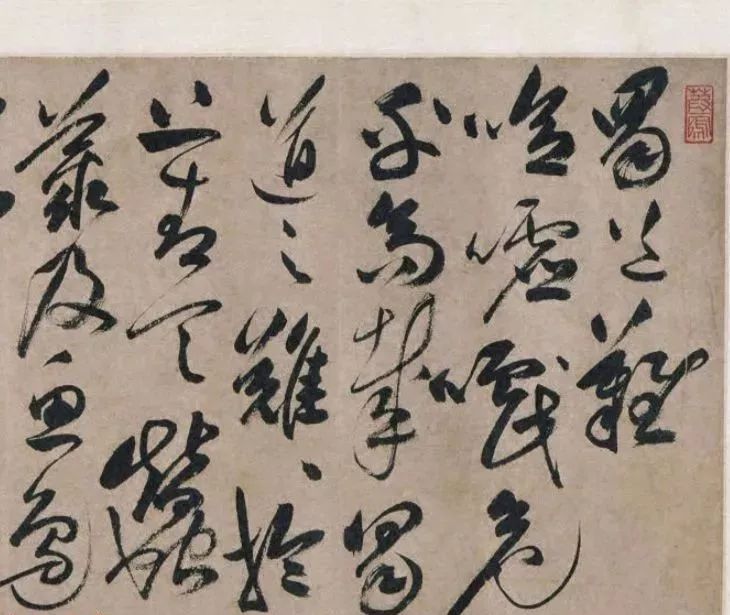 蜀道難
噫噓嚱危
乎高哉蜀
道之難々於
上青天蠶
叢及魚鳧